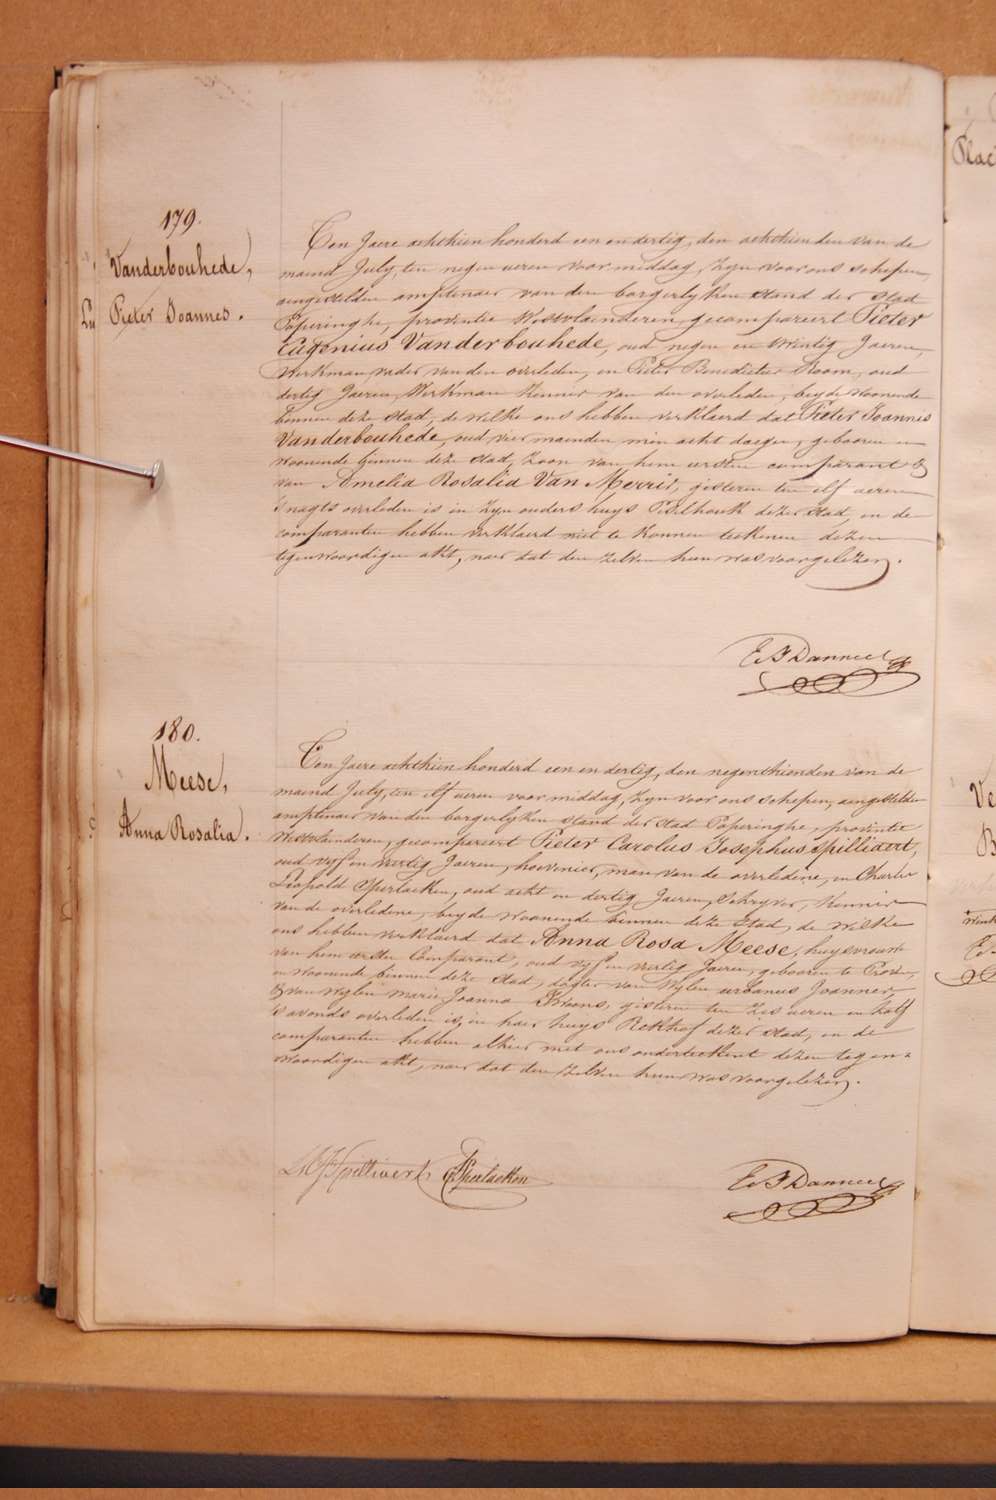 179.
Vanderbouhede,
Pieter Joannes.
Ten Jaere achthien honderd een en dertig, den achthienden van de
maend July, ten negen ueren voor middag, zyn voor ons schepen,
aengestelden amptenaer van den borgerlyken stand der stad
Poperinghe, provintie Westvlaenderen, gecompareert Pieter
Eugenius Vanderbouhede, oud negen en twintig Jaeren,
Werkman, vader van den overleden, en Pieter Benedictus Room, oud
dertig Jaeren, Werkman Kennis van den overleden, beyde woonende
binnen deze stad, de welke ons hebben verklaerd dat Pieter Joannes
Vanderbouhede, oud vier maenden min acht dagen, gebooren en
woonende binnen deze stad, zoon van hem eersten comparant &
van Amelia Rosalia Van Merris, gisteren ten elf ueren
's nagts overleden is in zyn ouders huys Peselhouk dezer stad, en de
comparanten hebben verklaerd niet te konnen teekenen dezen
tegenwoordigen akt, naer dat den zelven hun was voorgelezen.
E. F. Danneel
180.
Meese,
Anna Rosalia.
Ten Jaere achthien honderd een en dertig, den negenthienden van de
maend July, ten elf ueren voor middag, zyn voor ons schepen, aengestelden
amptenaer van den borgerlyken stand der stad Poperinghe, provintie
Westvlaenderen, gecompareert Pieter Carolus Josephus Spilliaert,
oud vyf en veertig Jaeren, hovenier, man van de overledene, en Charles
Leopold Sperlaeken, oud acht en dertig Jaeren, Schryver, Kennis
van de overledene, beyde woonende binnen deze stad, de welke
ons hebben verklaerd dat Anna Rosa Meese, huysvrouw
van hem eersten Comparant, oud vyf en veertig Jaeren, gebooren te Proven,
en woonende binnen deze stad, dogter van Wylen urbanus Joannes,
& van Wylen marie Joanna, gisteren ten zes ueren en half
's avonds overleden is, in haer huys Rekhof dezer stad, en de
comparanten hebben alhier met ons onderteekent dezen tegen=
woordigen akt, naer dat den zelven hun was voorgelezen.
Spilliaert Sperlaeken E. F. Danneel
Plac
Ve